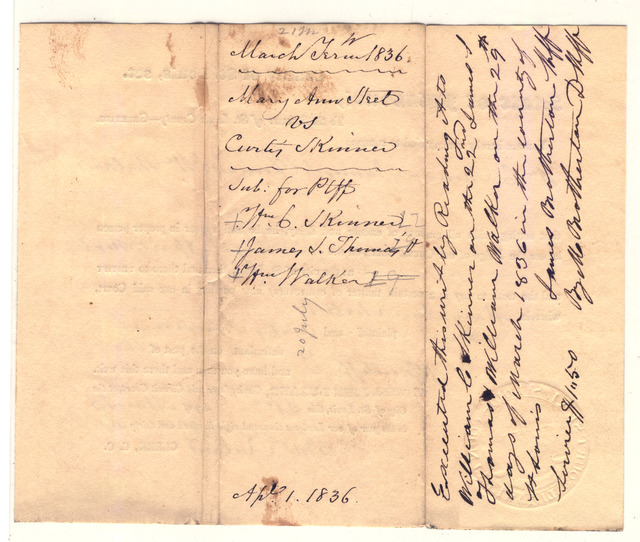 March Term 1836
Mary Ann Steel
vs
Curtis Skinner
Sub. for Plff
Wm. C. Skinner
James S. Thomas
Wm. Walker
20 July
Apl. 1. 1836.
Executed this writ by Reading it to
William C Skinner on the 22nd James S
Thomas & William Walker on the 29th
days of March 1836 in the county of
St Louis
James Brotherton Shff
Service $1.50 By M Brotherton D Shff